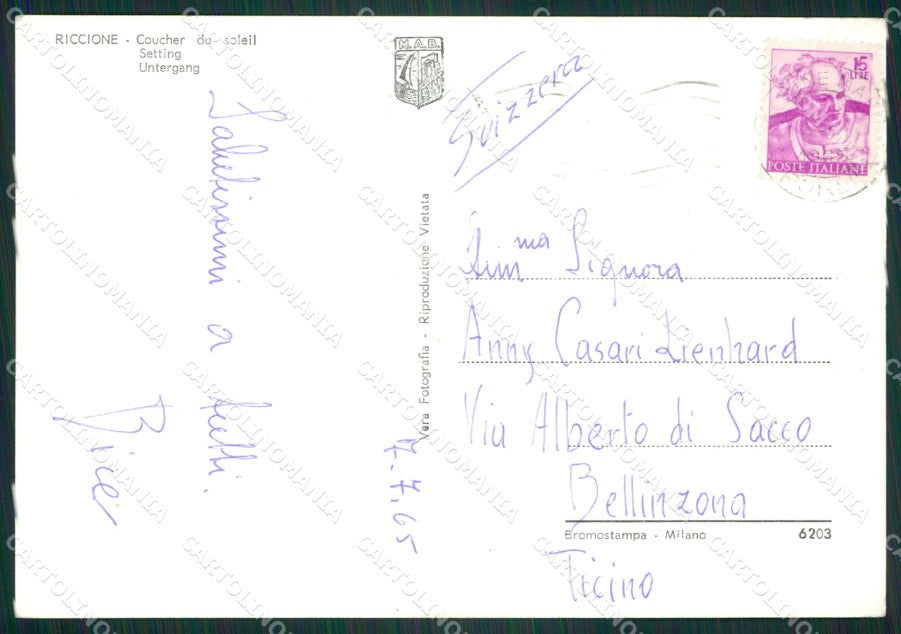 RICCIONE - Coucher du soleil
Setting
Untergang
M.A.B.
Svizzera
15
LIRE
POSTE ITALIANE
Salutissimi a tutti.
Bice
7.7.65
Vera Fotografia - Riproduzione Vietata
Sig.ma Signora
Anny Casari Lienhard
Via Alberto di Sacco
Bellinzona
Bromostampa - Milano
6203
Ticino
CARTOLINOMANIA